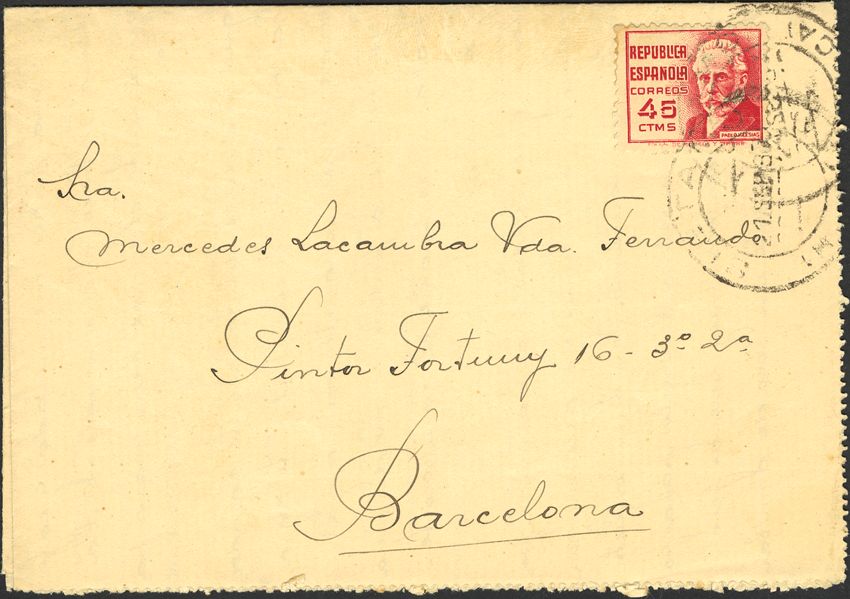 REPUBLICA
ESPAÑOLA
CORREOS
45
CTMS
PABLO IGLESIAS
Sra.
Mercedes Lacambra Vda. Ferrando
Pintor Fortuny 16 - 3º 2ª
Barcelona